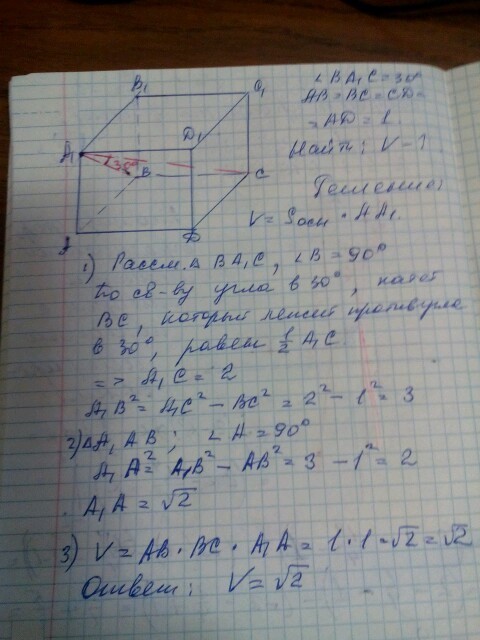 B₁
C₁
A₁
D₁
30°
B
C
A
D
∠BA₁C = 30°
AB = BC = CD =
= AD = 1.
Найти: V - ?
Решение:
V = Sосн · AA₁.
1) Рассм. Δ BA₁C, ∠B = 90°
По св-ву угла в 30°, катет
BC, который лежит против угла
в 30°, равен ½ A₁C.
=> A₁C = 2
A₁B² = A₁C² - BC² = 2² - 1² = 3
2) Δ A₁AB; ∠A = 90°
A₁A² = A₁B² - AB² = 3 - 1² = 2
A₁A = √2
3) V = AB · BC · A₁A = 1 · 1 · √2 = √2
Ответ: V = √2